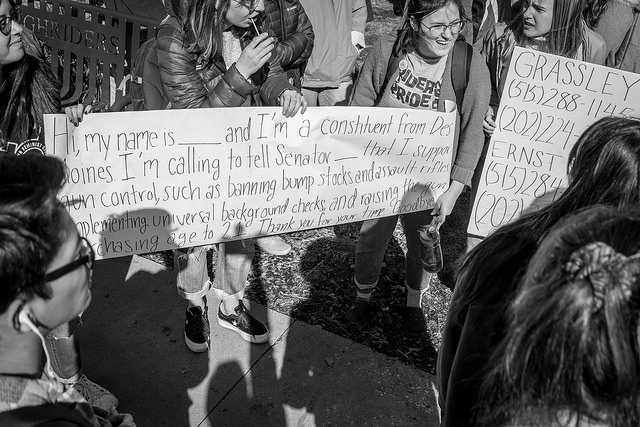 GHRIDERS
RIDER
PRIDE
Hi, my name is ___ and I'm a constituent from Des
oines. I'm calling to tell Senator ___ that I suppor
gun control, such as banning bump stocks and assault rifles
mplementing universal background checks, and raising the
chasing age to 21. Thank you for your time. Goodbye
GRASSLEY
(515) 288-114
(202) 224-
ERNST
(515) 284
(202)